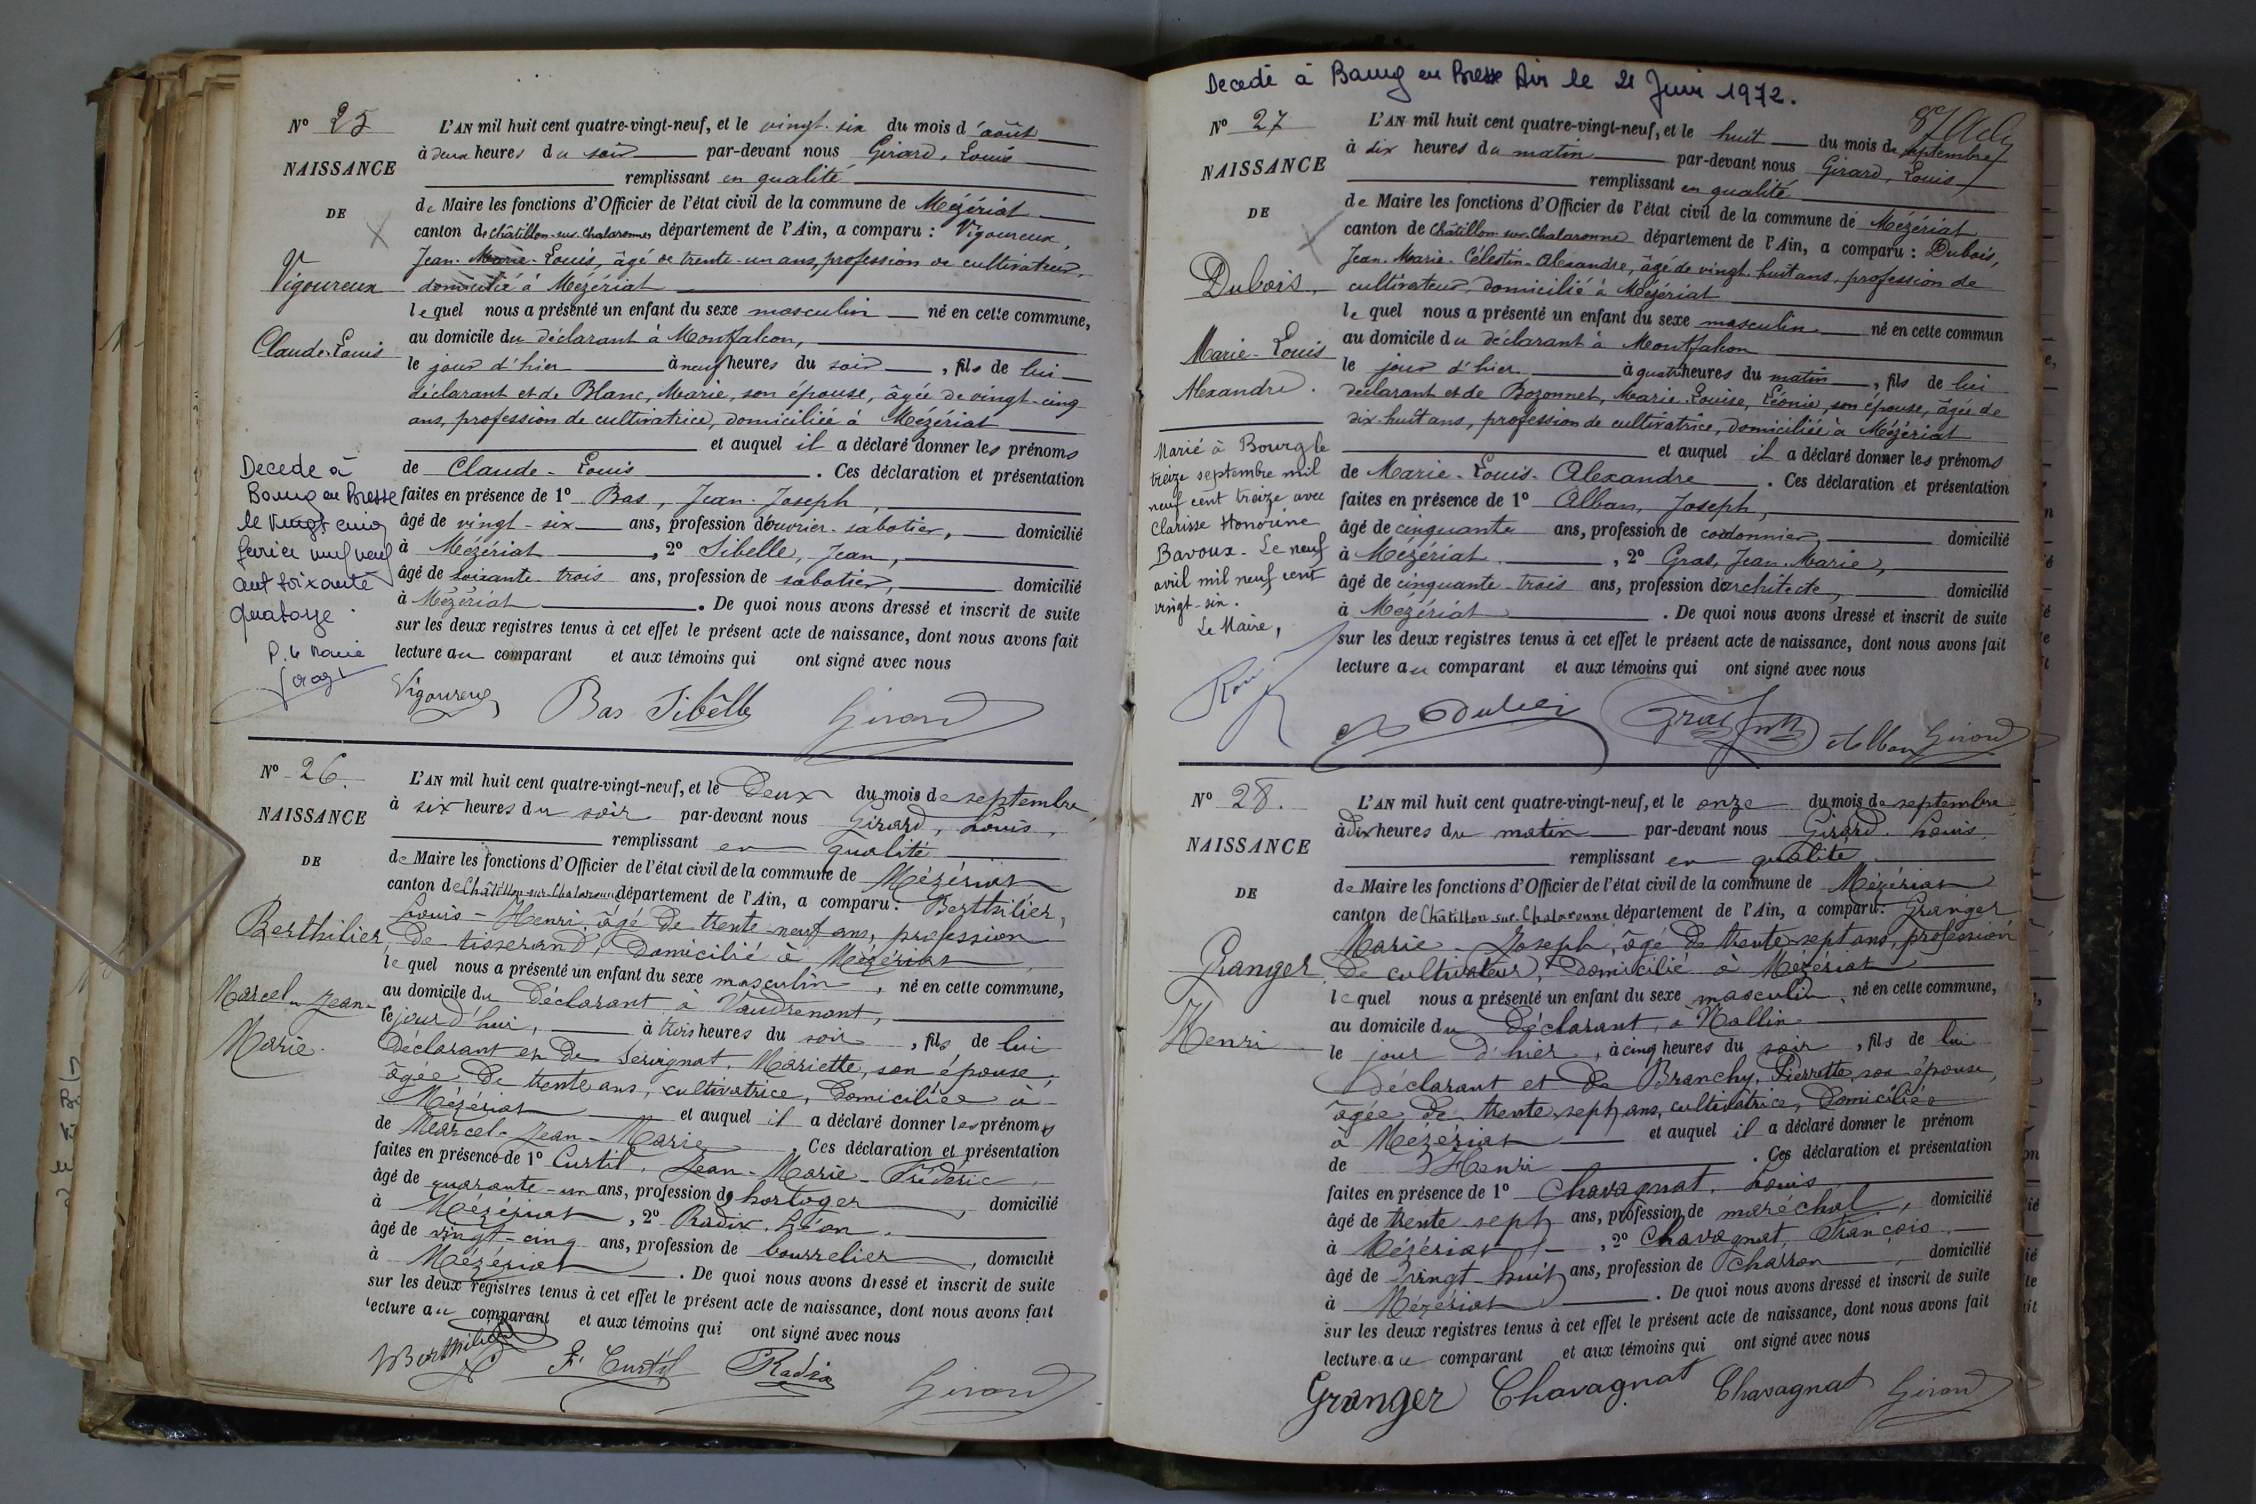 N° 25
NAISSANCE
DE
Vigoureux
Claude-Louis
Décédé à
Bourg en Bresse
le vingt cinq
février mil neuf
cent soixante
quatorze.
P. le Maire
L'AN mil huit cent quatre-vingt-neuf, et le vingt-six du mois d'août
à deux heures du soir par-devant nous Girard, Louis
remplissant en qualité
de Maire les fonctions d'Officier de l'état civil de la commune de Mézériat
canton de Châtillon-sur-Chalaronne, département de l'Ain, a comparu : Vigoureux,
Jean-Marie-Louis, âgé de trente-un ans, profession de cultivateur,
domicilié à Mézériat
lequel nous a présenté un enfant du sexe masculin né en cette commune,
au domicile du déclarant à Montfalcon,
le jour d'hier à neuf heures du soir, fils de lui
déclarant et de Blanc, Marie, son épouse, âgée de vingt-cinq
ans, profession de cultivatrice, domiciliée à Mézériat
et auquel il a déclaré donner les prénoms
de Claude-Louis. Ces déclaration et présentation
faites en présence de 1° Bas, Jean-Joseph,
âgé de vingt-six ans, profession d'ouvrier-sabotier, domicilié
à Mézériat, 2° Sibelle, Jean,
âgé de soixante-trois ans, profession de sabotier, domicilié
à Mézériat. De quoi nous avons dressé et inscrit de suite
sur les deux registres tenus à cet effet le présent acte de naissance, dont nous avons fait
lecture au comparant et aux témoins qui ont signé avec nous
Vigoureux Bas Sibelle Girard
N° 26.
NAISSANCE
DE
Berthilier
Marcel-Jean-
Marie.
L'AN mil huit cent quatre-vingt-neuf, et le Deux du mois de septembre,
à six heures du soir par-devant nous Girard, Louis,
remplissant en qualité
de Maire les fonctions d'Officier de l'état civil de la commune de Mézériat
canton de Châtillon-sur-Chalaronne département de l'Ain, a comparu: Berthilier,
Louis-Henri, âgé de trente-neuf ans, profession
de tisserand, domicilié à Mézériat
lequel nous a présenté un enfant du sexe masculin, né en cette commune,
au domicile du Déclarant à Vaudrenont,
le jour d'hui, à trois heures du soir, fils de lui
Déclarant et de Servignat, Mariette, son épouse,
âgée de trente ans, cultivatrice, domiciliée à
Mézériat et auquel il a déclaré donner les prénoms
de Marcel-Jean-Marie Ces déclaration et présentation
faites en présence de 1° Curtil, Jean-Marie-Fréderic,
âgé de quarante-un ans, profession de horloger, domicilié
à Mézériat, 2° Radix, Léon,
âgé de vingt-cinq ans, profession de bourrelier, domicilié
à Mézériat. De quoi nous avons dressé et inscrit de suite
sur les deux registres tenus à cet effet le présent acte de naissance, dont nous avons fait
lecture au comparant et aux témoins qui ont signé avec nous
Berthilier F. Curtil Radix Girard
Décedé à Bourg en Bresse Ain le 21 Juin 1972.
N° 27
NAISSANCE
DE
Dubois,
Marie-Louis
Alexandre.
Marié à Bourg le
treize septembre mil
neuf cent treize avec
Clarisse Honorine
Bavoux. Le neuf
avril mil neuf cent
vingt-six.
Le Maire,
L'AN mil huit cent quatre-vingt-neuf, et le huit du mois de septembre
à dix heures du matin par-devant nous Girard, Louis
remplissant en qualité
de Maire les fonctions d'Officier de l'état civil de la commune de Mézériat
canton de Châtillon-sur-Chalaronne département de l'Ain, a comparu : Dubois,
Jean-Marie-Célestin-Alexandre, âgé de vingt-huit ans, profession de
cultivateur, domicilié à Mézériat
lequel nous a présenté un enfant du sexe masculin né en cette commun
au domicile du déclarant à Montfalcon
le jour d'hier à quatre heures du matin, fils de lui
déclarant et de Bozonnet, Marie-Louise, Léonie, son épouse, âgée de
dix-huit ans, profession de cultivatrice, domiciliée à Mézériat
et auquel il a déclaré donner les prénoms
de Marie-Louis-Alexandre. Ces déclaration et présentation
faites en présence de 1° Alban, Joseph,
âgé de cinquante ans, profession de cordonnier, domicilié
à Mézériat, 2° Gras, Jean-Marie,
âgé de cinquante-trois ans, profession d'architecte, domicilié
à Mézériat. De quoi nous avons dressé et inscrit de suite
sur les deux registres tenus à cet effet le présent acte de naissance, dont nous avons fait
lecture au comparant et aux témoins qui ont signé avec nous
Dubois Gras Alban Girard
N° 28.
NAISSANCE
DE
Granger
Henri
L'AN mil huit cent quatre-vingt-neuf, et le onze du mois de septembre
à dix heures du matin par-devant nous Girard, Louis,
remplissant en qualité
de Maire les fonctions d'Officier de l'état civil de la commune de Mézériat
canton de Châtillon-sur-Chalaronne département de l'Ain, a comparu: Granger
Marie-Joseph, âgé de trente-sept ans, profession
de cultivateur, domicilié à Mézériat
lequel nous a présenté un enfant du sexe masculin, né en cette commune,
au domicile du Déclarant, à Mallin
le jour d'hier, à cinq heures du soir, fils de lui
déclarant et de Branchy, Pierrette, son épouse,
âgée de trente-sept ans, cultivatrice, domiciliée
à Mézériat et auquel il a déclaré donner le prénom
de Henri. Ces déclaration et présentation
faites en présence de 1° Chavagnat, Louis
âgé de trente-sept ans, profession de maréchal, domicilié
à Mézériat, 2° Chavagnat, François,
âgé de vingt-huit ans, profession de charron, domicilié
à Mézériat. De quoi nous avons dressé et inscrit de suite
sur les deux registres tenus à cet effet le présent acte de naissance, dont nous avons fait
lecture au comparant et aux témoins qui ont signé avec nous
Granger Chavagnat Chavagnat Girard